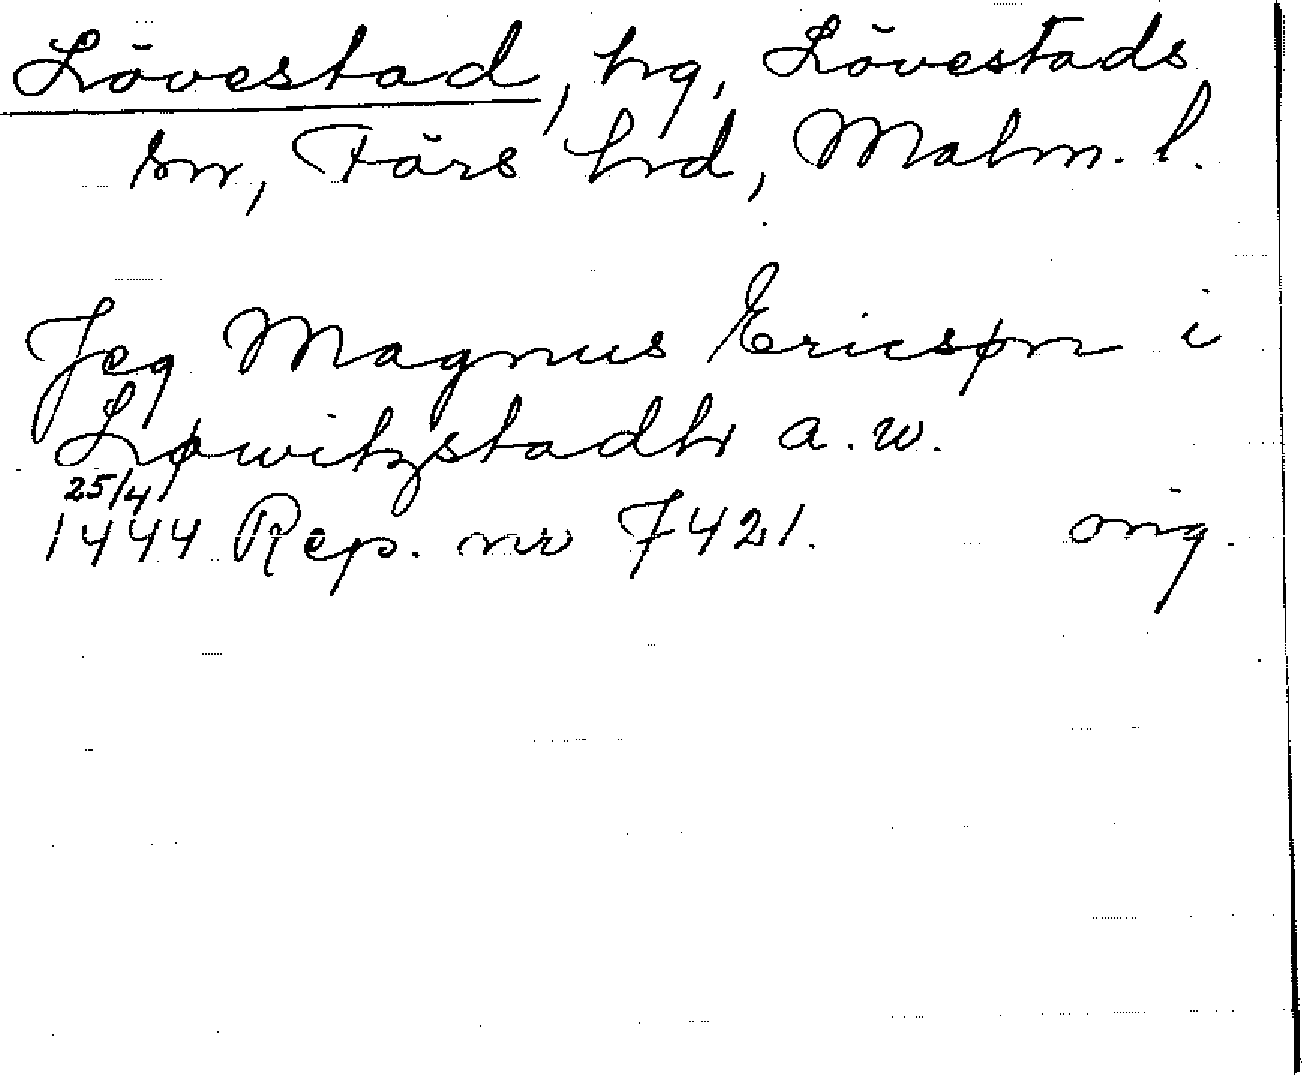 Lövestad, hg, Lövestads
sn, Färs hrd, Malm. l.
Jeg Magnus Ericsøn i
Løwitzstadh a. w.
25/4
1444 Rep. nr 7421. orig.